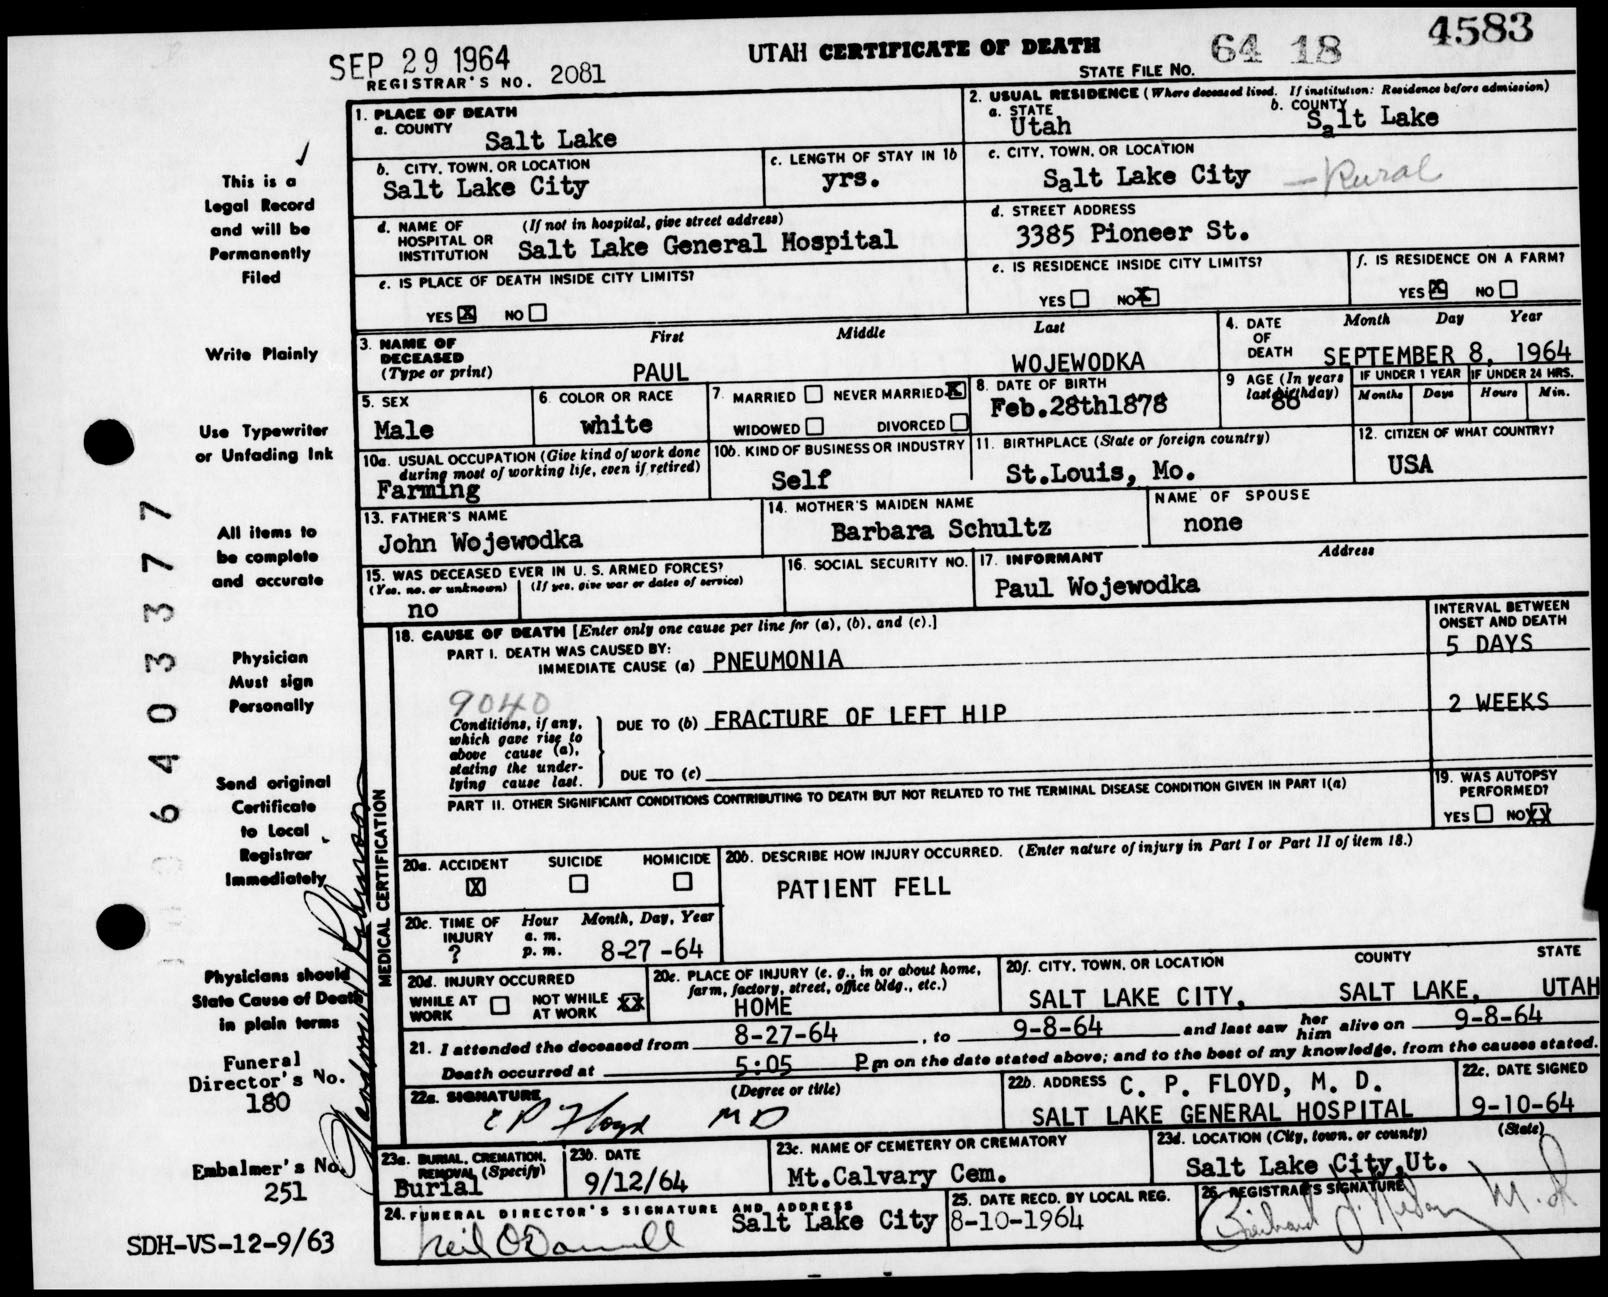 SEP 29 1964
UTAH CERTIFICATE OF DEATH
64 18
4583
REGISTRAR'S NO. 2081
STATE FILE NO.
1. PLACE OF DEATH
a. COUNTY
Salt Lake
2. USUAL RESIDENCE (Where deceased lived. If institution: Residence before admission)
a. STATE
Utah
b. COUNTY
Salt Lake
b. CITY, TOWN, OR LOCATION
Salt Lake City
c. LENGTH OF STAY IN 1b
yrs.
c. CITY, TOWN, OR LOCATION
Salt Lake City — Rural
d. NAME OF HOSPITAL OR INSTITUTION
(If not in hospital, give street address)
Salt Lake General Hospital
d. STREET ADDRESS
3385 Pioneer St.
e. IS PLACE OF DEATH INSIDE CITY LIMITS?
YES X NO
e. IS RESIDENCE INSIDE CITY LIMITS?
YES NO X
f. IS RESIDENCE ON A FARM?
YES X NO
3. NAME OF DECEASED
(Type or print)
First Middle Last
PAUL WOJEWODKA
4. DATE OF DEATH
Month Day Year
SEPTEMBER 8, 1964
5. SEX
Male
6. COLOR OR RACE
white
7. MARRIED NEVER MARRIED X
WIDOWED DIVORCED
8. DATE OF BIRTH
Feb.28th1878
9 AGE (In years last birthday)
86
IF UNDER 1 YEAR
Months Days
IF UNDER 24 HRS.
Hours Min.
10a. USUAL OCCUPATION (Give kind of work done during most of working life, even if retired)
Farming
10b. KIND OF BUSINESS OR INDUSTRY
Self
11. BIRTHPLACE (State or foreign country)
St.Louis, Mo.
12. CITIZEN OF WHAT COUNTRY?
USA
13. FATHER'S NAME
John Wojewodka
14. MOTHER'S MAIDEN NAME
Barbara Schultz
NAME OF SPOUSE
none
15. WAS DECEASED EVER IN U. S. ARMED FORCES?
(Yes, no, or unknown) (If yes, give war or dates of service)
no
16. SOCIAL SECURITY NO.
17. INFORMANT Address
Paul Wojewodka
18. CAUSE OF DEATH [Enter only one cause per line for (a), (b), and (c).]
INTERVAL BETWEEN ONSET AND DEATH
PART I. DEATH WAS CAUSED BY:
IMMEDIATE CAUSE (a) PNEUMONIA
5 DAYS
9040
Conditions, if any, which gave rise to above cause (a), stating the underlying cause last.
DUE TO (b) FRACTURE OF LEFT HIP
2 WEEKS
DUE TO (c)
PART II. OTHER SIGNIFICANT CONDITIONS CONTRIBUTING TO DEATH BUT NOT RELATED TO THE TERMINAL DISEASE CONDITION GIVEN IN PART I(a)
19. WAS AUTOPSY PERFORMED?
YES NO XX
MEDICAL CERTIFICATION
20a. ACCIDENT SUICIDE HOMICIDE
X
20b. DESCRIBE HOW INJURY OCCURRED. (Enter nature of injury in Part I or Part II of item 18.)
PATIENT FELL
20c. TIME OF INJURY
Hour Month, Day, Year
a. m.
p. m.
? 8-27-64
20d. INJURY OCCURRED
WHILE AT WORK NOT WHILE AT WORK XX
20e. PLACE OF INJURY (e. g., in or about home, farm, factory, street, office bldg., etc.)
HOME
20f. CITY, TOWN, OR LOCATION COUNTY STATE
SALT LAKE CITY, SALT LAKE, UTAH
21. I attended the deceased from 8-27-64, to 9-8-64 and last saw her him alive on 9-8-64
Death occurred at 5:05 P m on the date stated above; and to the best of my knowledge, from the causes stated.
22a. SIGNATURE (Degree or title)
C P Floyd M D
22b. ADDRESS C. P. FLOYD, M. D.
SALT LAKE GENERAL HOSPITAL
22c. DATE SIGNED
9-10-64
23a. BURIAL, CREMATION, REMOVAL (Specify)
Burial
23b. DATE
9/12/64
23c. NAME OF CEMETERY OR CREMATORY
Mt.Calvary Cem.
23d. LOCATION (City, town, or county) (State)
Salt Lake City,Ut.
24. FUNERAL DIRECTOR'S SIGNATURE AND ADDRESS
Neil O'Donnell Salt Lake City
25. DATE RECD. BY LOCAL REG.
8-10-1964
26. REGISTRAR'S SIGNATURE
This is a
Legal Record
and will be
Permanently
Filed
Write Plainly
Use Typewriter
or Unfading Ink
All items to
be complete
and accurate
Physician
Must sign
Personally
Send original
Certificate
to Local
Registrar
Immediately
Physicians should
State Cause of Death
in plain terms
Funeral
Director's No.
180
Embalmer's No.
251
SDH-VS-12-9/63
6403377